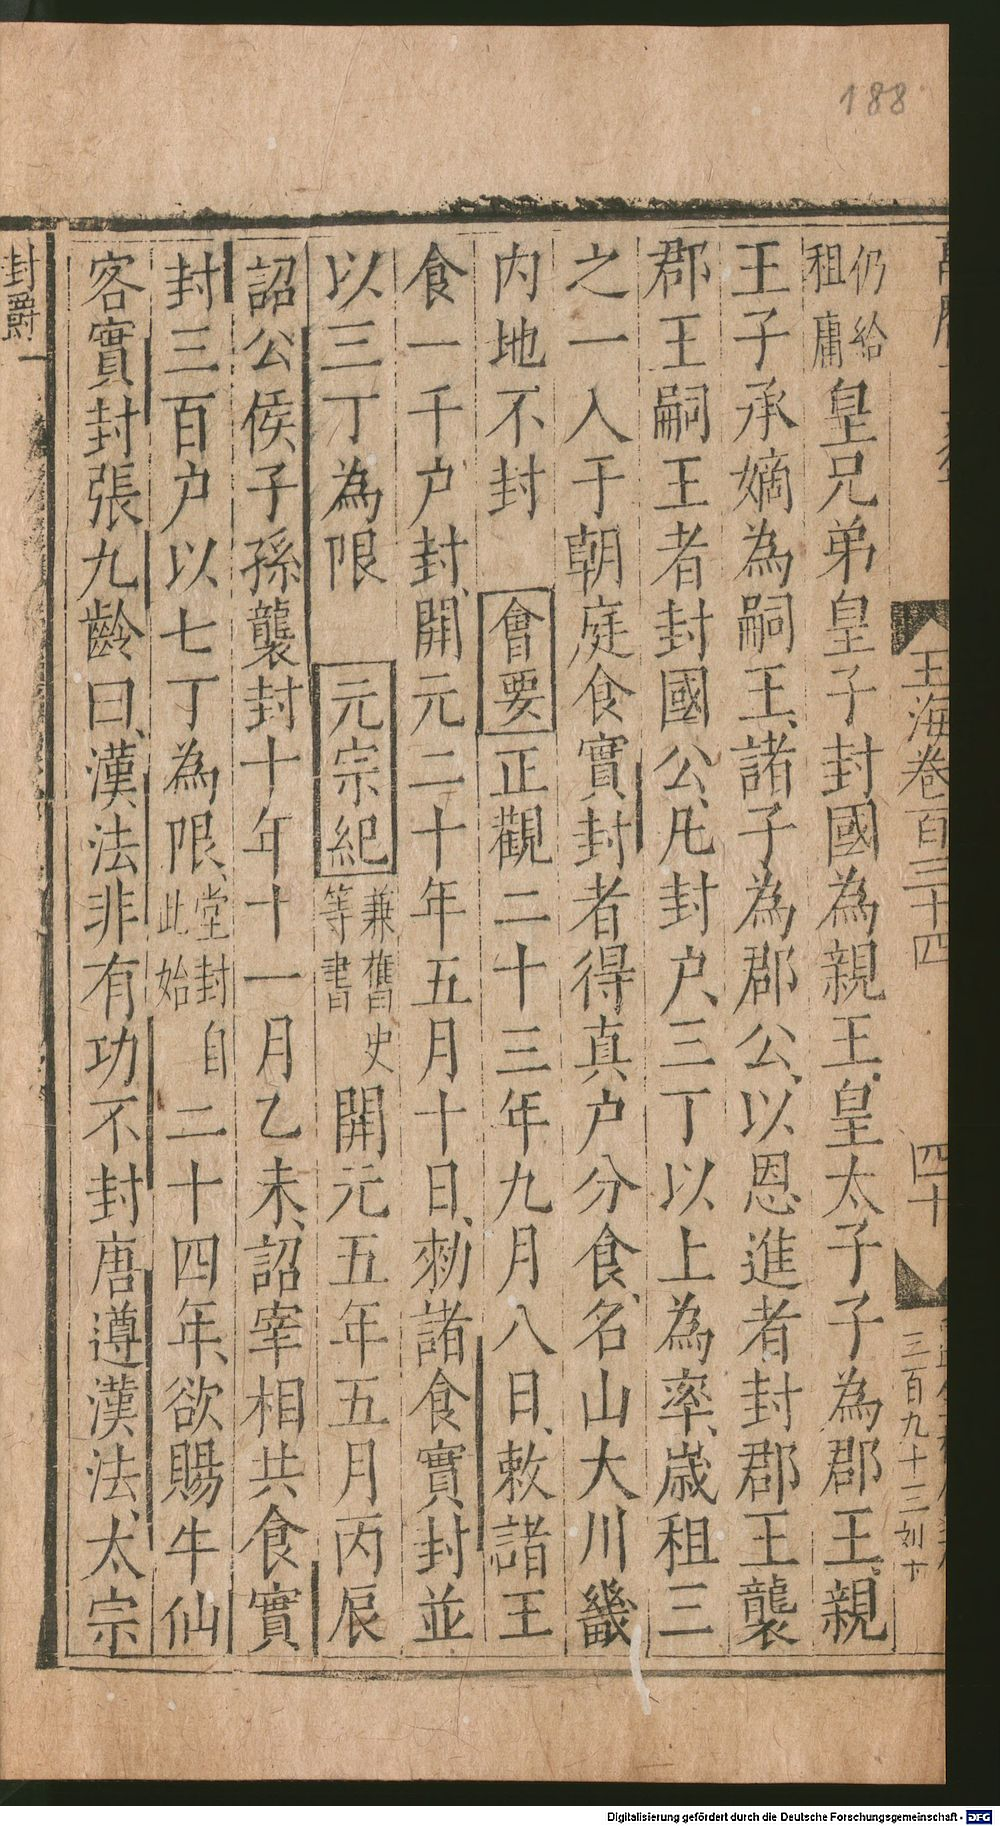 188
玉海卷百三十四
四十
三百九十三
仍給租庸皇兄弟皇子封國為親王皇太子子為郡王親
王子承嫡為嗣王諸子為郡公以恩進者封郡王襲
郡王嗣王者封國公凡封户三丁以上為率歲租三
之一入于朝庭食實封者得真户分食名山大川畿
内地不封 會要正觀二十三年九月八日敕諸王
食一千户封開元二十年五月十日勑諸食實封並
以三丁為限 元宗紀兼舊史等書開元五年五月丙辰
詔公侯子孫襲封十年十一月乙未詔宰相共食實
封三百户以七丁為限堂封自此始二十四年欲賜牛仙
客實封張九齡曰漢法非有功不封唐遵漢法太宗
封爵一
Digitalisierung gefördert durch die Deutsche Forschungsgemeinschaft - DFG